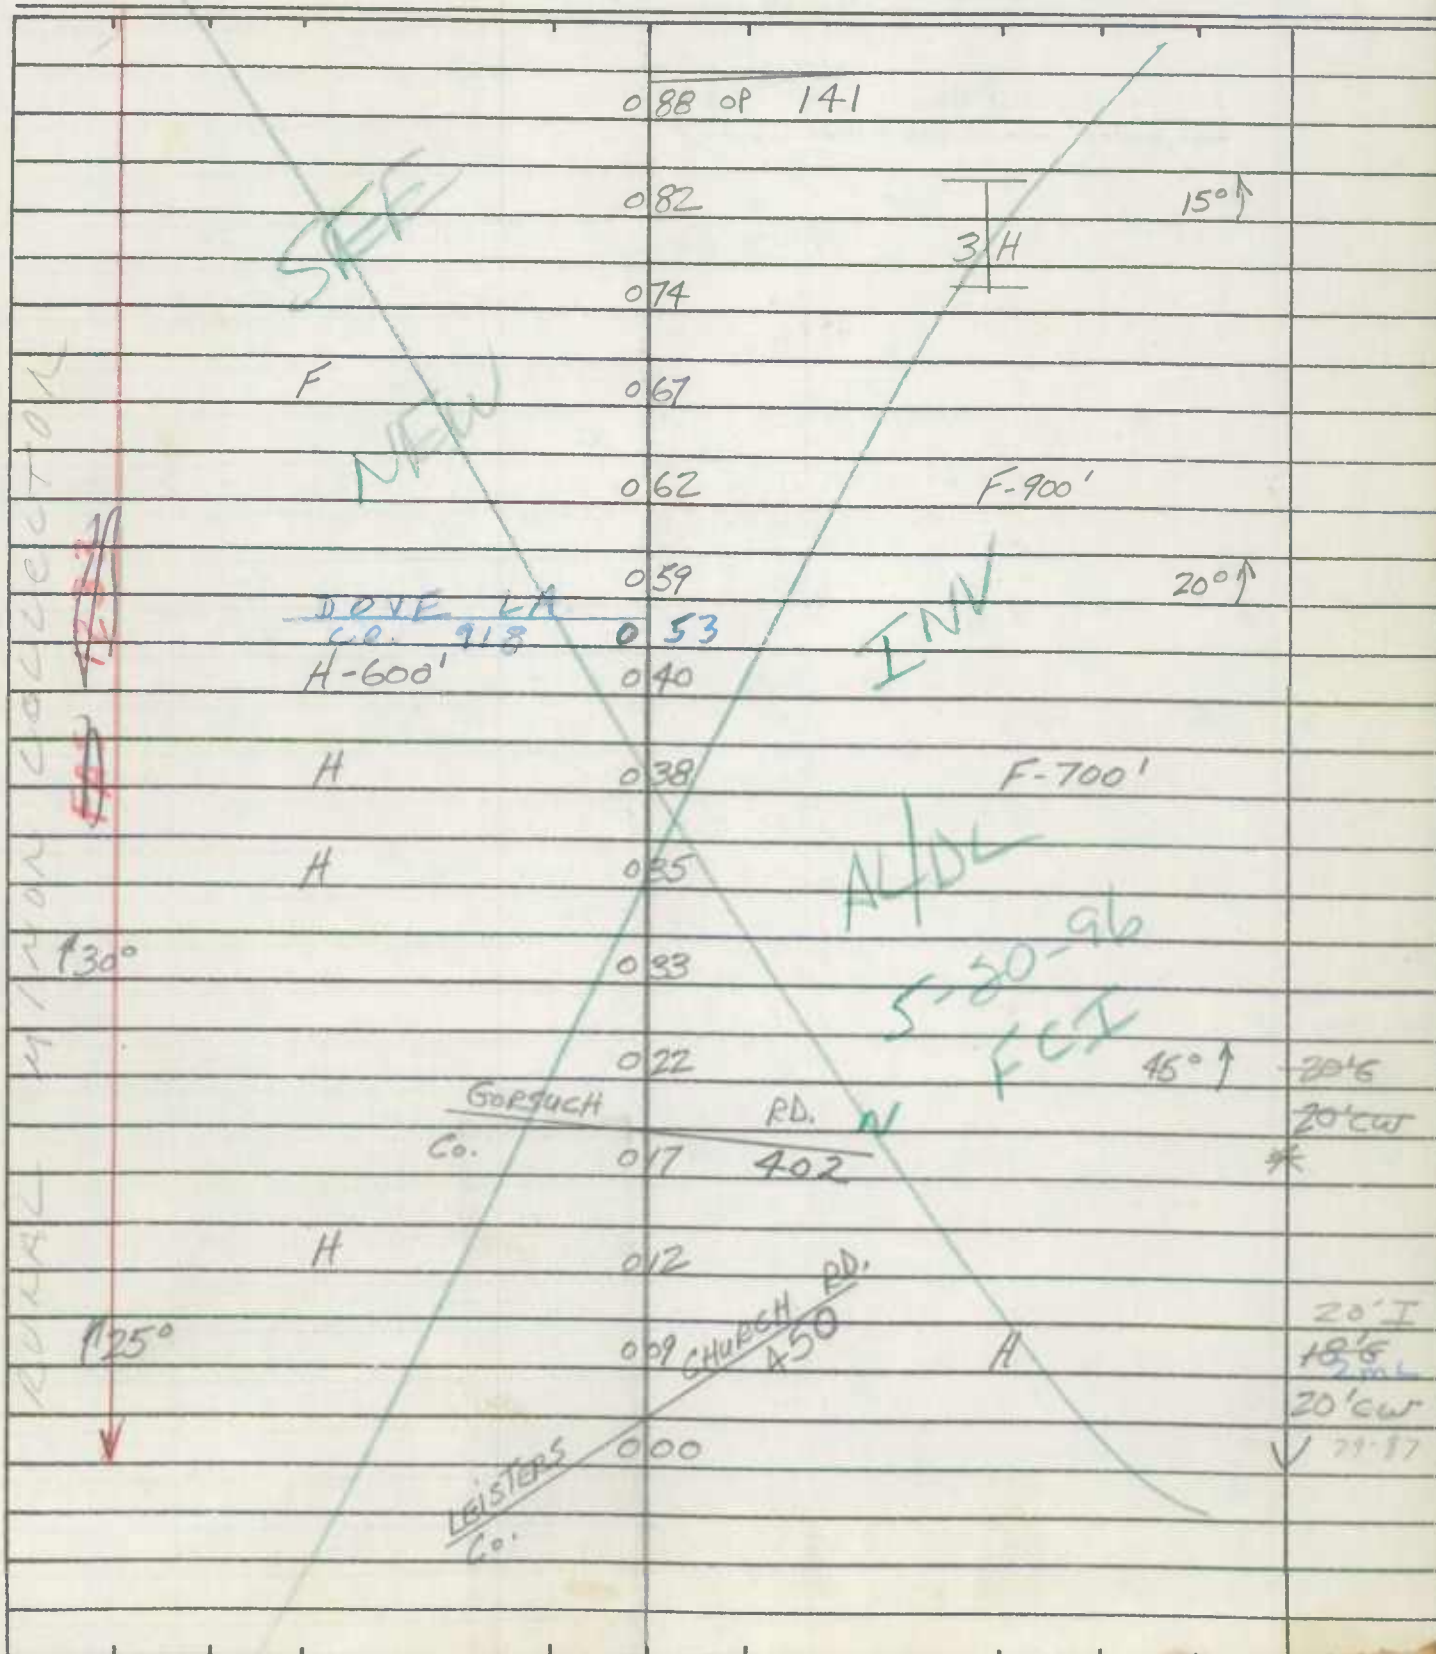 0 88 OP 141
0 82 15°↑
SEE
3 H
0 74
F 0 67
NEW
0 62 F-900'
0 59 20°↑
DOVE LA
CO. 918 0 53
INV
H-600' 0 40
H 0 38 F-700'
H 0 35
AL/DL
↑30° 0 33
5-30-96
FCI
0 22 45°↑
20'CW
GORSUCH RD. N
Co. 0 17 402 *
H 0 12
CHURCH RD.
20' I
↑25° 0 09 450 H
18'G
2ML
20'CW
0 00
79-87
LEISTERS
Co.
RURAL MINOR COLLECTOR